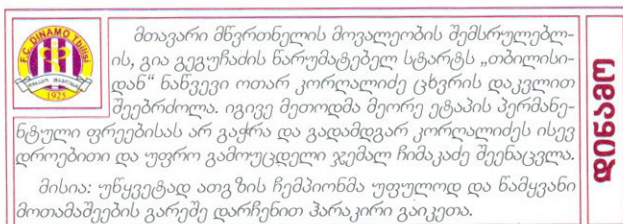 F.C. DINAMO Tbilisi
1925
მთავარი მწვრთნელის მოვალეობის შემსრულებლ-
ის, გია გეგუჩაძის წარუმატებელ სტარტს „თბილისი-
დან“ ნაწვევი ოთარ კორღალიძე ცხვრის დაკვლით
შეებრძოლა. იგივე მეთოდმა მეორე ეტაპის პერმანე-
ნტული ფრეებისას არ გაჭრა და გადამდგარ კორღალიძეს ისევ
დროებითი და უფრო გამოუცდელი ჯემალ ჩიმაკაძე შეენაცვლა.
მისია: უწყვეტად ათგზის ჩემპიონმა უფულოდ და წამყვანი
მოთამაშეების გარეშე დარჩენით ჰარაკირი გაიკეთა.
დინამო